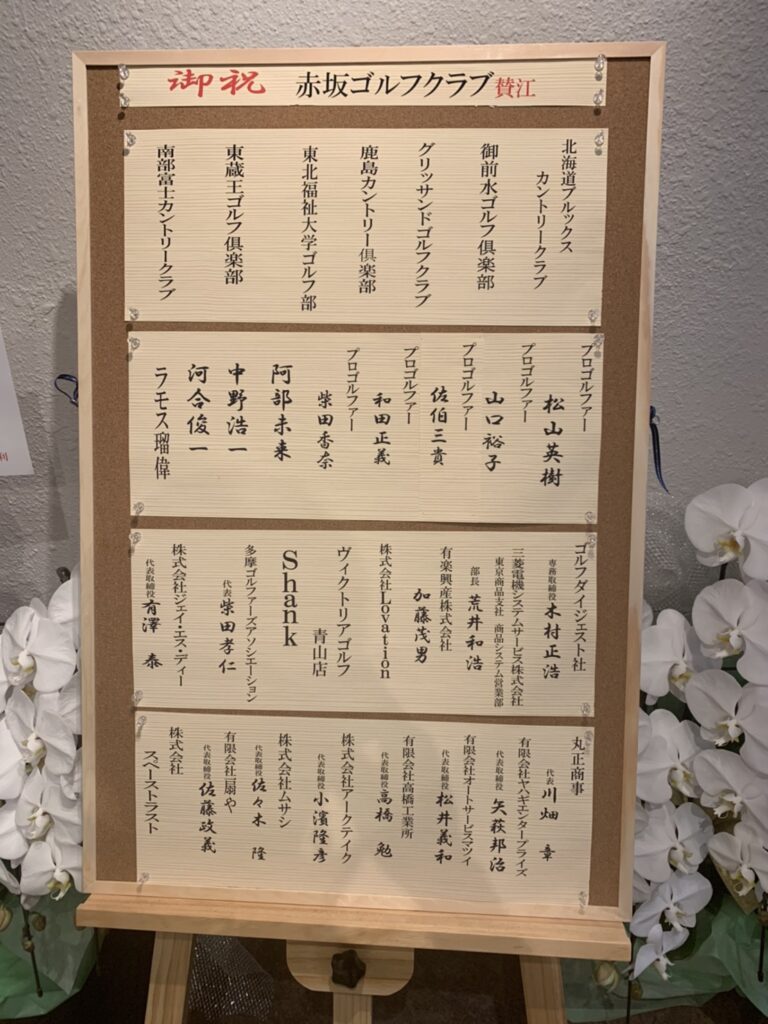 御祝 赤坂ゴルフクラブ賛江
北海道ブルックス
カントリークラブ
御前水ゴルフ倶楽部
グリッサンドゴルフクラブ
鹿島カントリー倶楽部
東北福祉大学ゴルフ部
東蔵王ゴルフ倶楽部
南部富士カントリークラブ
プロゴルファー
松山英樹
プロゴルファー
山口裕子
プロゴルファー
佐伯三貴
プロゴルファー
和田正義
プロゴルファー
柴田香奈
阿部未来
中野浩一
河合俊一
ラモス瑠偉
ゴルフダイジェスト社
専務取締役 木村正浩
三菱電機システムサービス株式会社
東京商品支社 商品システム営業部
部長 荒井和浩
有楽興産株式会社
加藤茂男
株式会社Lovation
ヴィクトリアゴルフ
青山店
Shank
多摩ゴルファーズアソシエーション
代表 柴田孝仁
株式会社ジェイ・エス・ディー
代表取締役 有澤 泰
丸正商事
代表 川畑 章
有限会社ヤハギエンタープライズ
代表取締役 矢萩邦治
有限会社オートサービスマツイ
代表取締役 松井義和
有限会社高橋工業所
代表取締役 高橋 勉
株式会社アークテイク
代表取締役 小濱隆彦
株式会社ムサシ
代表取締役 佐々木 隆
有限会社扇や
代表取締役 佐藤政義
株式会社
スペーストラスト
利